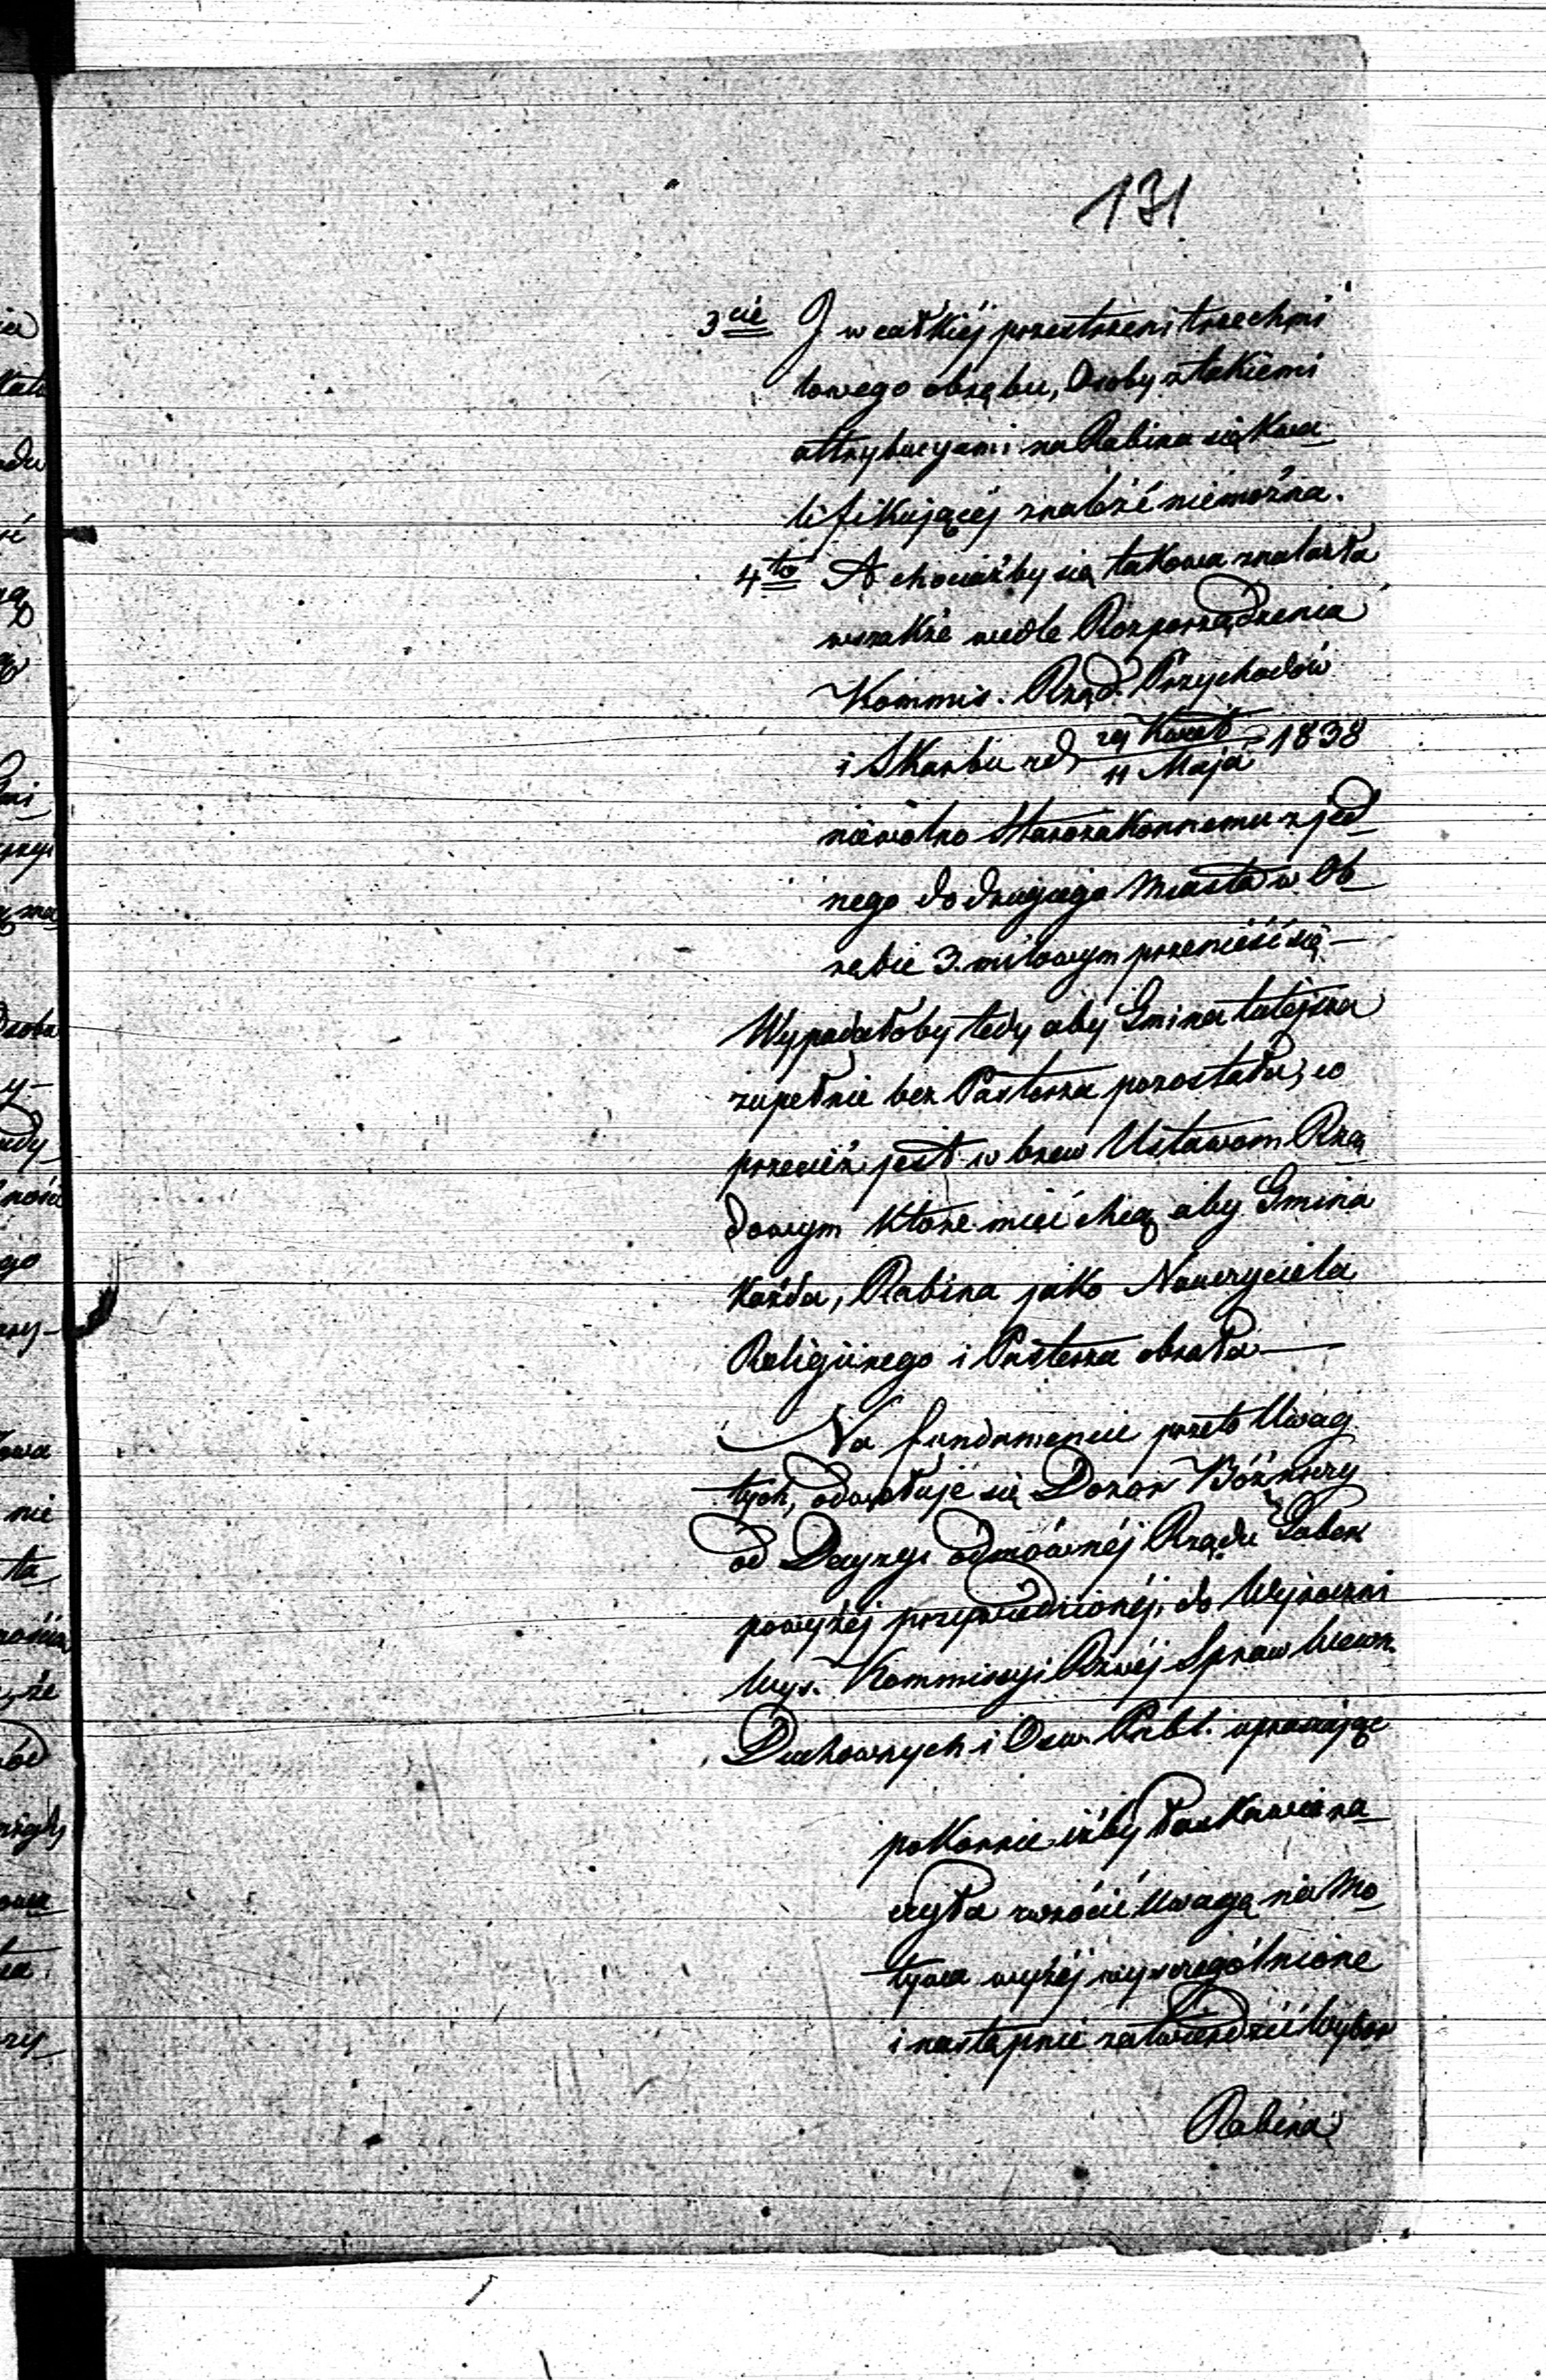 131
3cie J w całkiéj przestrzeni trzechmi
lowego obrębu, Osoby z takiemi
attrybucyami na Rabina się Kwa-
lifikującéj znaleźć niemożna.
4to A chociażby się takowa znalazła
wszakże wedle Rozporządzenia
Kommis: Rząd. Przychodów
i Skarbu z d. 29 Kwiet / 11 Maja 1838
niewolno Starozakonnemu z jed-
nego do drugiego Miasta w Ob-
rębie 3. milowym przenieść się —
Wypadałoby tedy aby Gmina tutejsza
zupełnie bez Pasterza pozostała, co
przecież jest w brew Ustawom Rzą
dowym które mieć chcą aby Gmina
każda, Rabina jako Nauczyciela
Religijnego i Pasterza obrała —
Na fundamencie przeto Uwag
tych, odwołuje się Dozór Bóżniczy
od Decyzyi odmownéj Rządu Guber
powyżéj przywiedzionéj, do
Wys. Kommissyi Rzwéj Spraw Wewn.
Duchownych i Ośw. Publ. upraszając
pokornie iżby łaskawie ra-
czyła zwrócić Uwagę na Mo-
tywa wyżéj wyszczególnione
i następnie zatwierdzić Wybor
Rabina